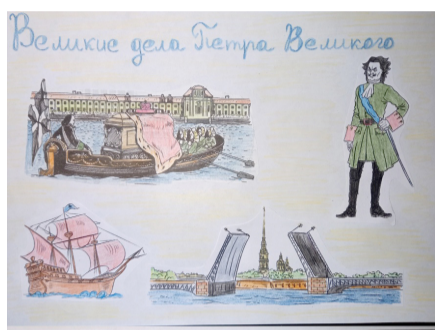 Великие дела Петра Великого